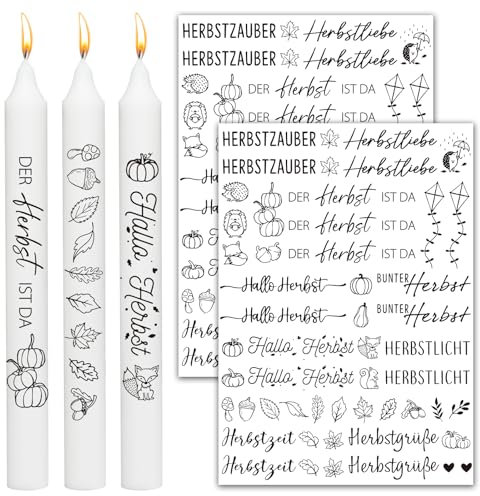 DER Herbst IST DA
Hallo Herbst
HERBSTZAUBER Herbstliebe
HERBSTZAUBER Herbstliebe
DER Herbst IST DA
DER Herbst IST DA
Hallo
Hallo
Herbstzeit
Herbstzeit
HERBSTZAUBER Herbstliebe
HERBSTZAUBER Herbstliebe
DER Herbst IST DA
DER Herbst IST DA
DER Herbst IST DA
Hallo Herbst BUNTER Herbst
Hallo Herbst BUNTER Herbst
Hallo Herbst HERBSTLICHT
Hallo Herbst HERBSTLICHT
Herbstzeit Herbstgrüße
Herbstzeit Herbstgrüße